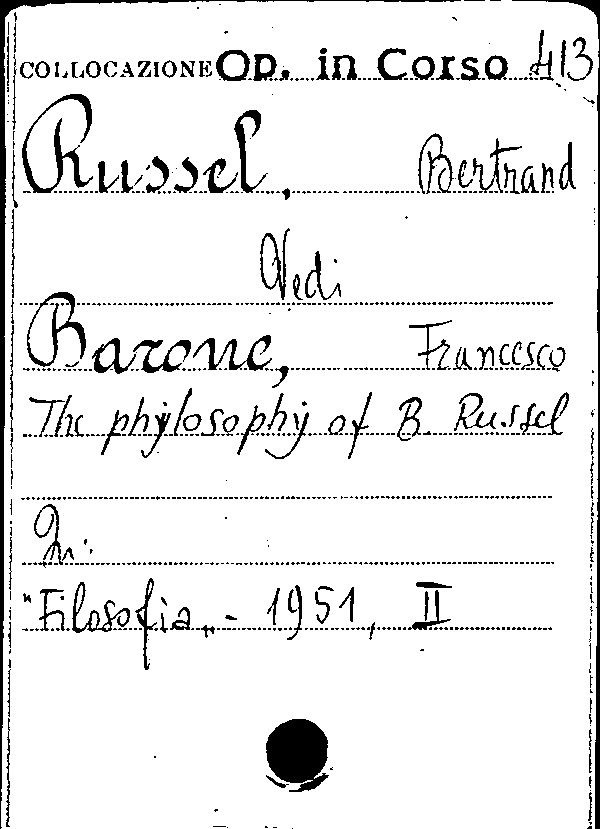 COLLOCAZIONE Op. in Corso 413
Russel, Bertrand
Vedi
Barone, Francesco
The phylosophy of B. Russel
In:
"Filosofia„ - 1951, II